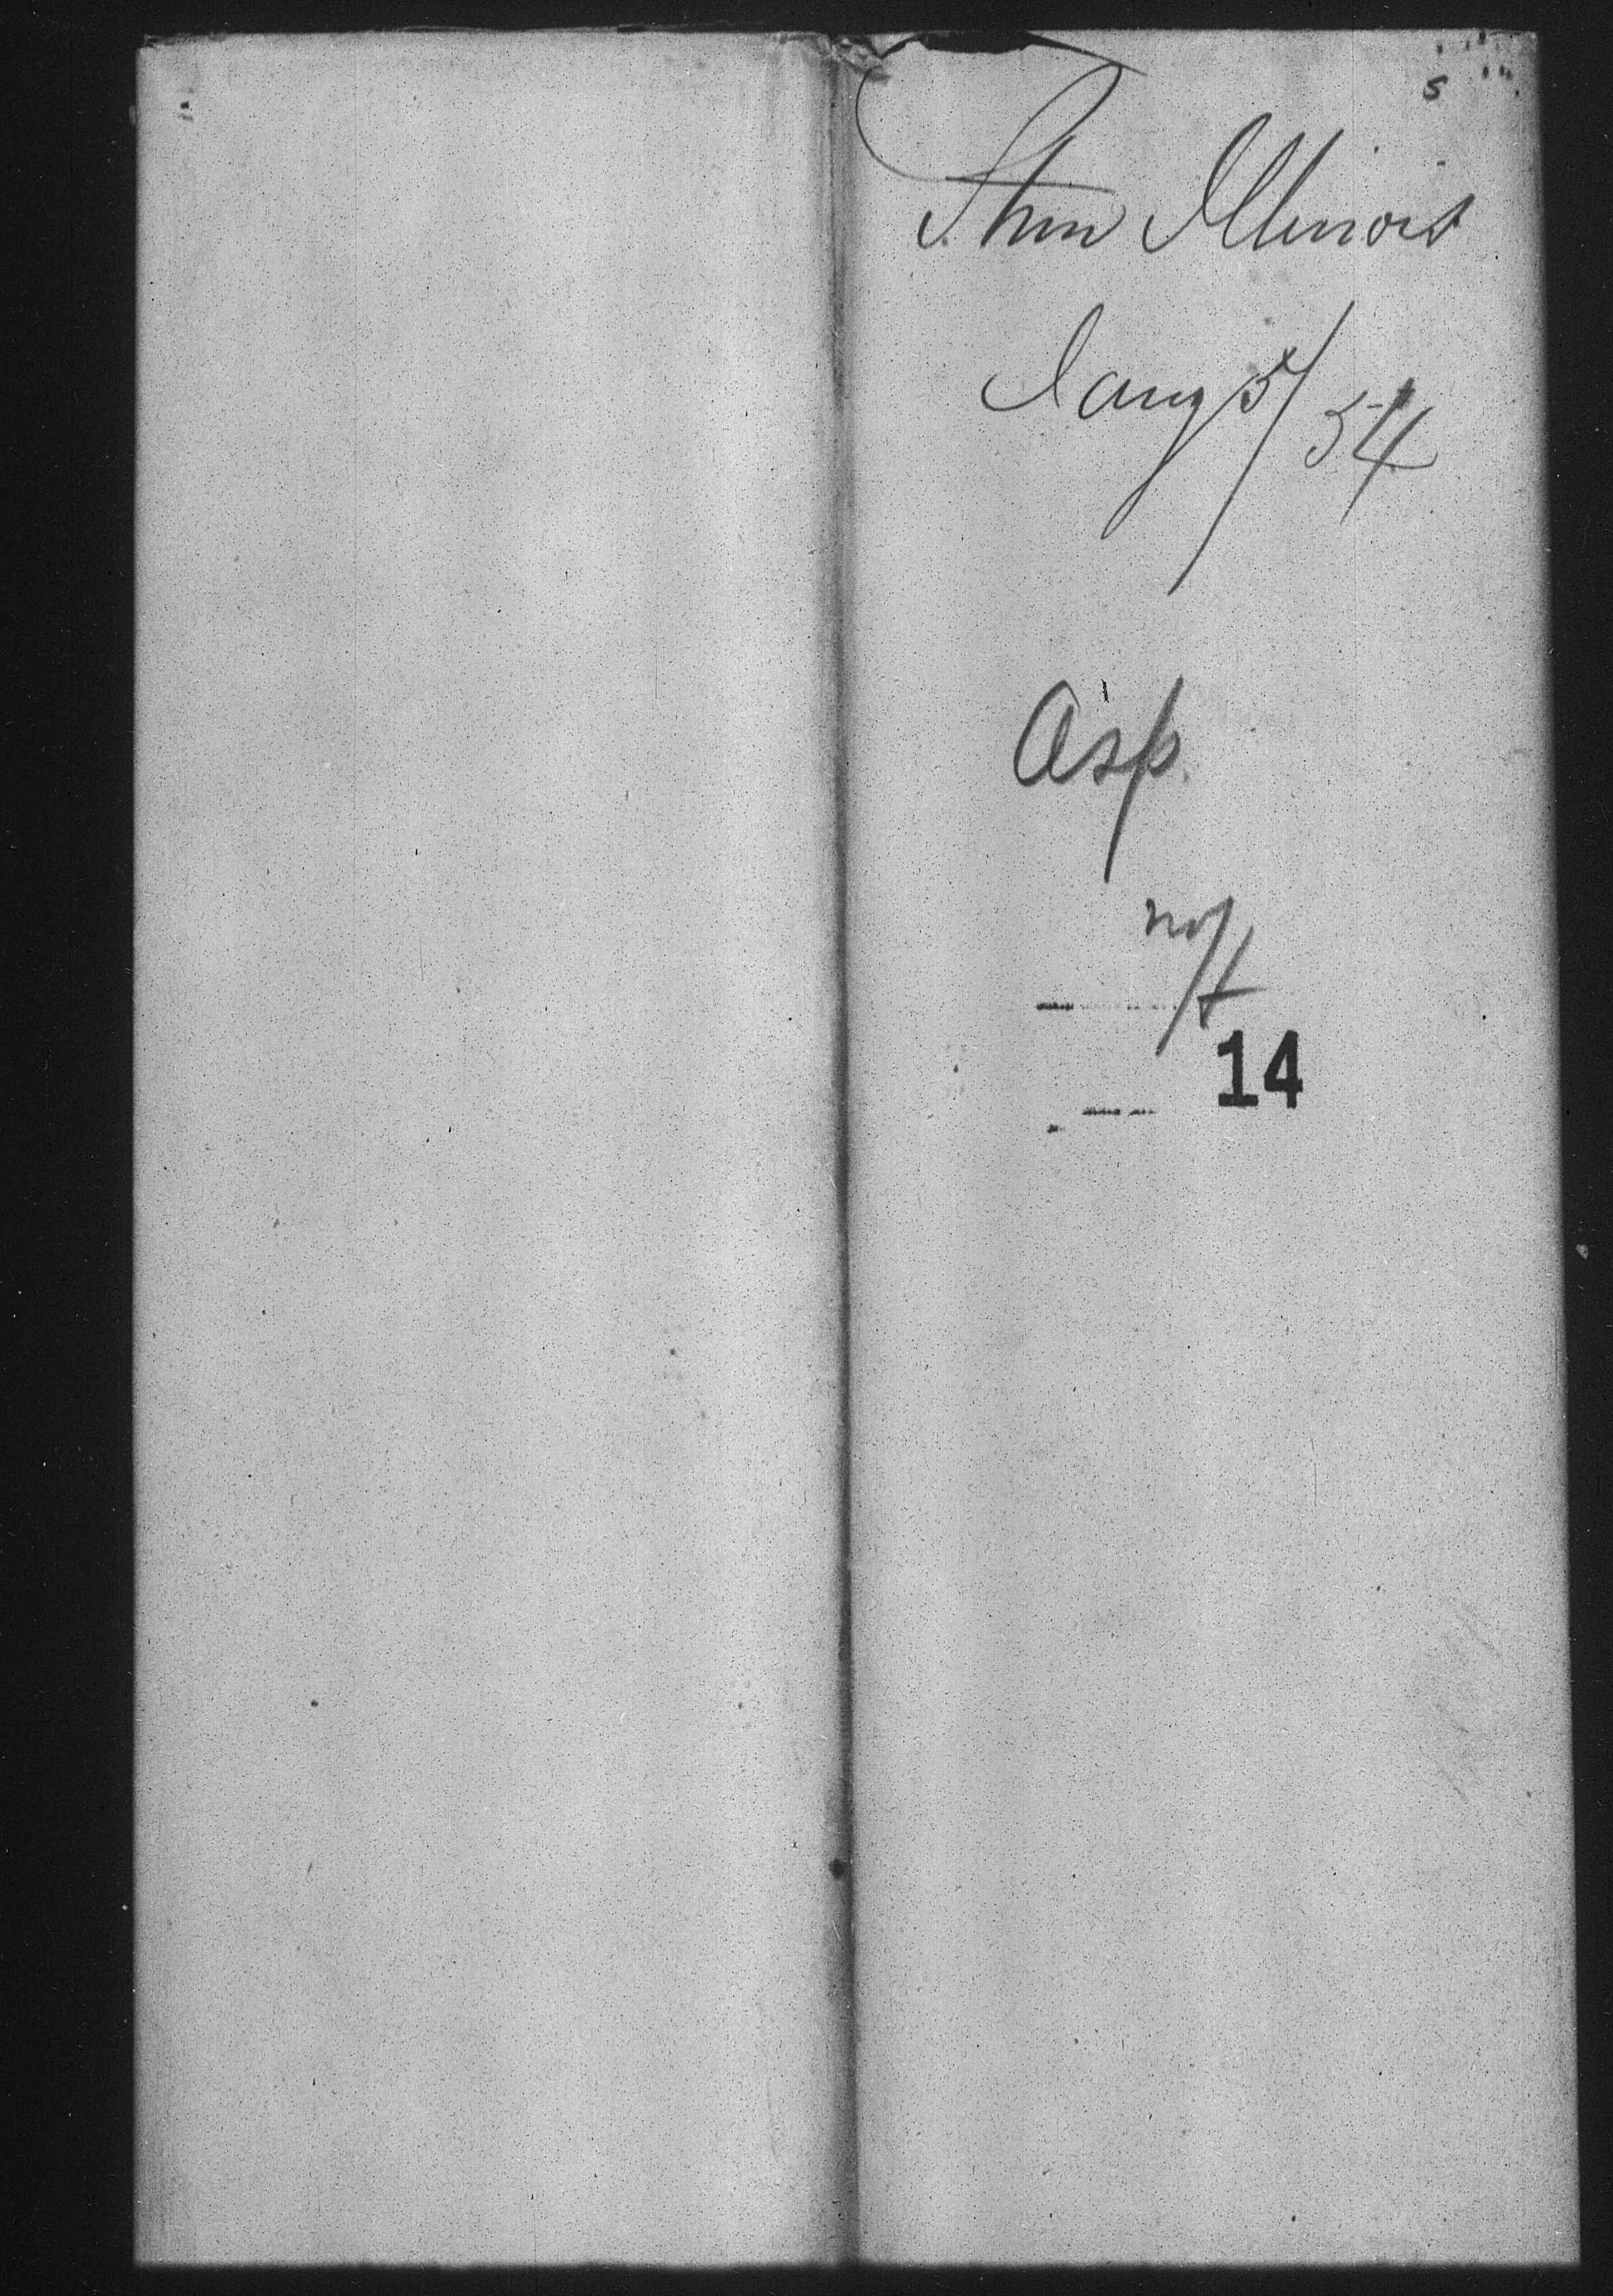 S
Stmr Illinois
Jany 5/54
Asp.
14